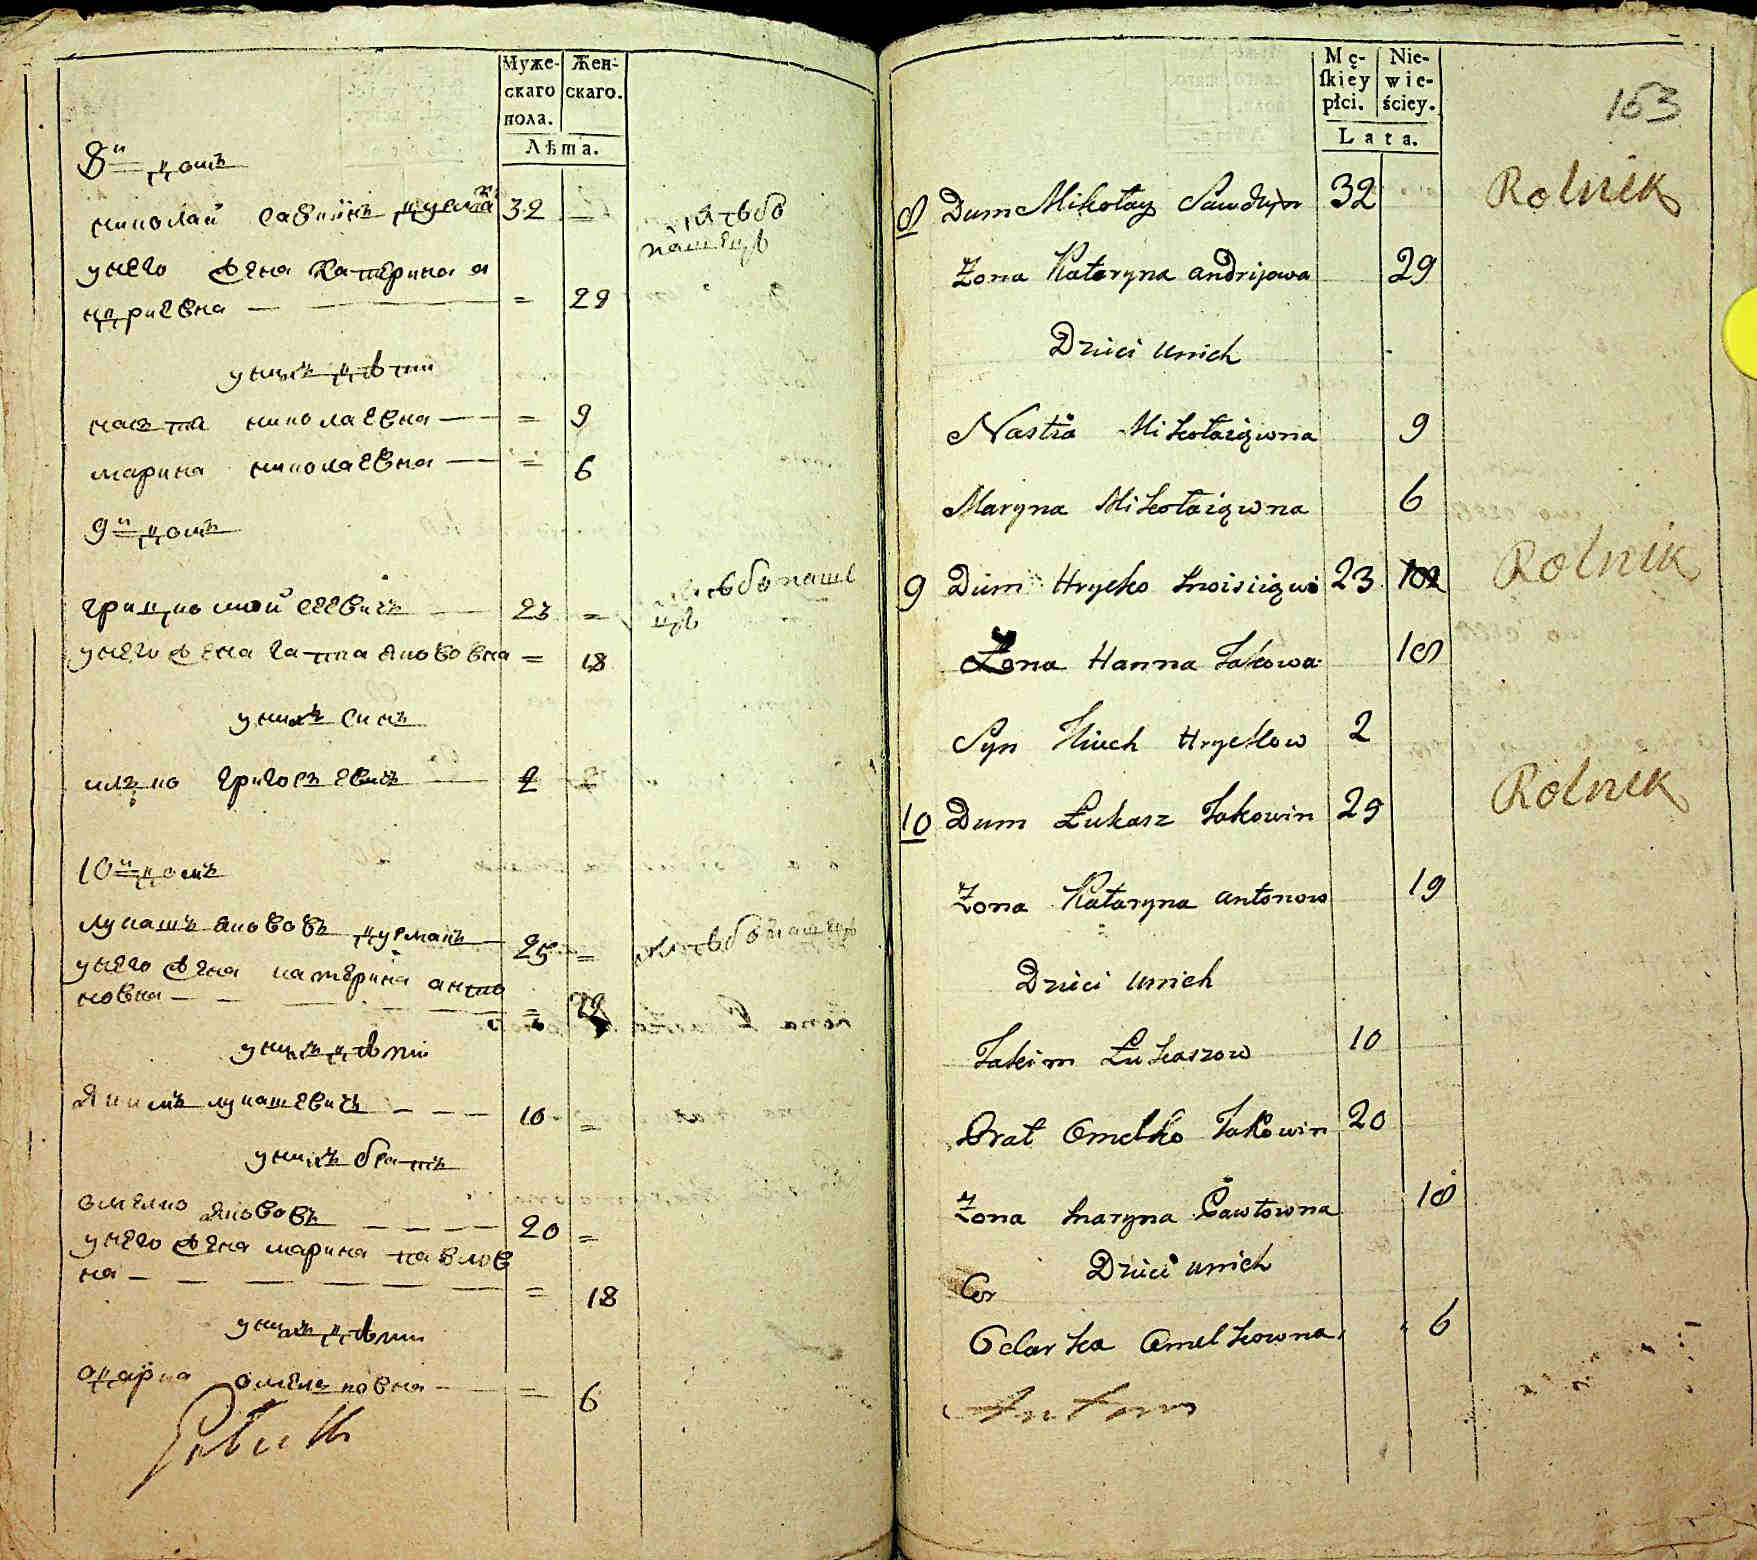 Муже-
скаго
пола.
Жен-
скаго.
Лѣта.
8й домъ
николай савинъ 32 =
хлѣбо
пашецъ
унего жена катерина а
ндриевна = 29
унихъ дѣти
настя николаевна = 9
марина николаевна = 6
9й домъ
грицко мойсеевичъ 23 =
хлѣбопаше
цъ
унего жена ганна яковвна = 18
унихъ синъ
илко григоръевичъ 2 =
10й домъ
лукашъ яковъ 25 = хлѣбопашецъ
унего жена катерина анто
новна =
унихъ дѣти
якимъ лукашевичъ 10 =
унихъ братъ
омелко яковъ 20 =
унего жена марина павлов
на = 18
унихъ дѣти
одарка омелковна = 6
Mę-
skiey
płci.
Nie-
wie-
ściey.
Lata.
163
8 Dum Mikołay Sawdyn 32 Rolnik
Żona Kataryna andrijowa 29
Dzieci unich
Nastia Mikołaiowna 9
Maryna Mikołaiowna 6
9 Dum Hrycko 23 Rolnik
Żona Hanna Jakowa 18
Syn Hryckow 2
10 Dum Łukasz Jakowin 29 Rolnik
Żona Kataryna antonow 19
Dzieci unich
Jakim Łukaszow 10
Brat Omelko Jakowin 20
Żona Maryna Pawłowna 18
Dzieci unich
Cor
Odarka Omelkowna 6